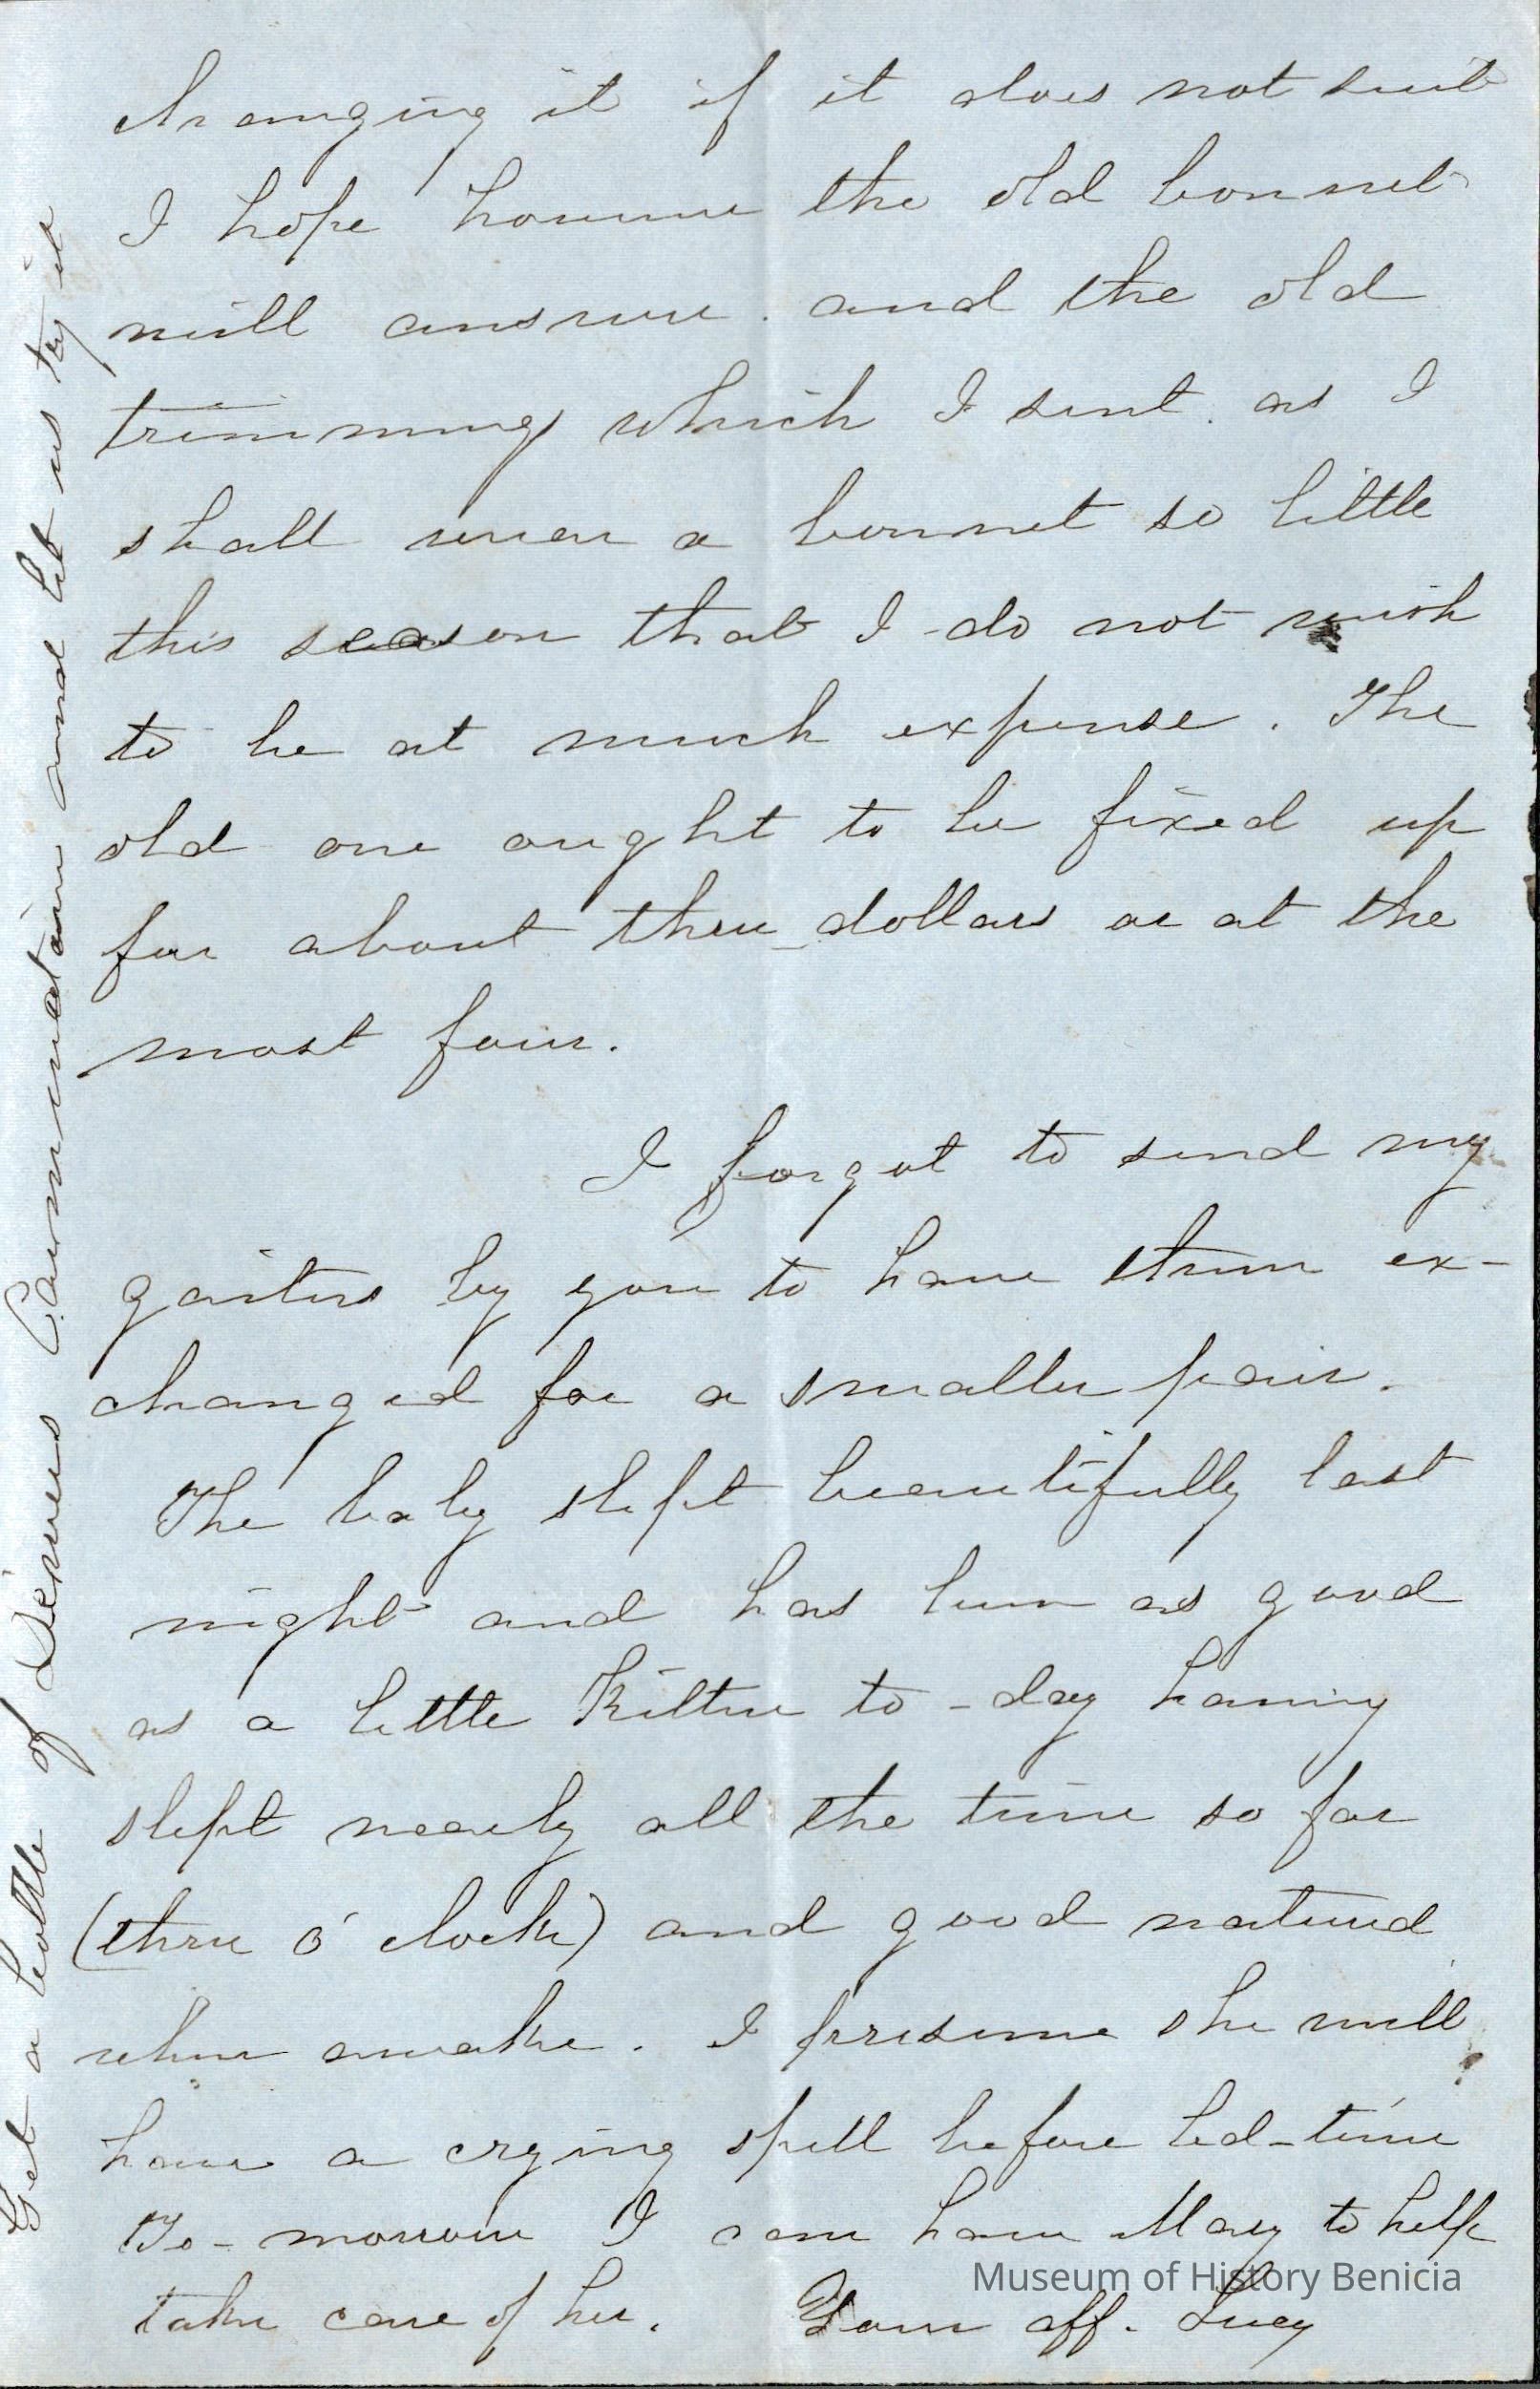 changing it if it does not suit
I hope however the old bonnet
will answer and the old
trimmings which I sent as I
shall wear a bonnet so little
this season that I do not wish
to be at much expense. The
old one ought to be fixed up
for about three dollars or at the
most four.
I forgot to send my
gaiters by you to have them ex-
changed for a smaller pair.
The baby slept beautifully last
night and has been as good
as a little Kitten to-day having
slept nearly all the time so far
(three o'clock) and good natured
when awake. I presume she will
have a crying spell before bed-time
To-morrow I can have Mary to help
take care of her. Your aff. Lucy
Get a bottle of Carminative and let us try it
Museum of History Benicia